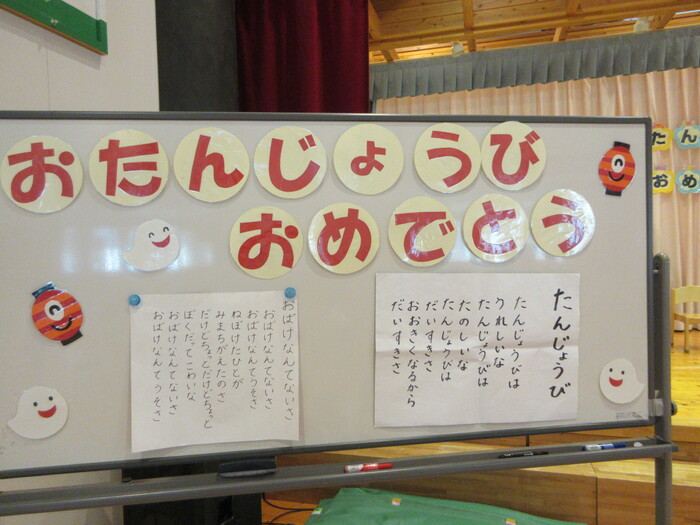 おたんじょうび
おめでとう
おばけなんてないさ
おばけなんてないさ
おばけなんてうそさ
ねぼけたひとが
みまちがえたのさ
だけどちょっとだけどちょっと
ぼくだってこわいな
おばけなんてないさ
おばけなんてうそさ
たんじょうび
たんじょうびは
うれしいな
たんじょうびは
たのしいな
たんじょうびは
だいすきさ
おおきくなるから
だいすきさ
たん
おめ